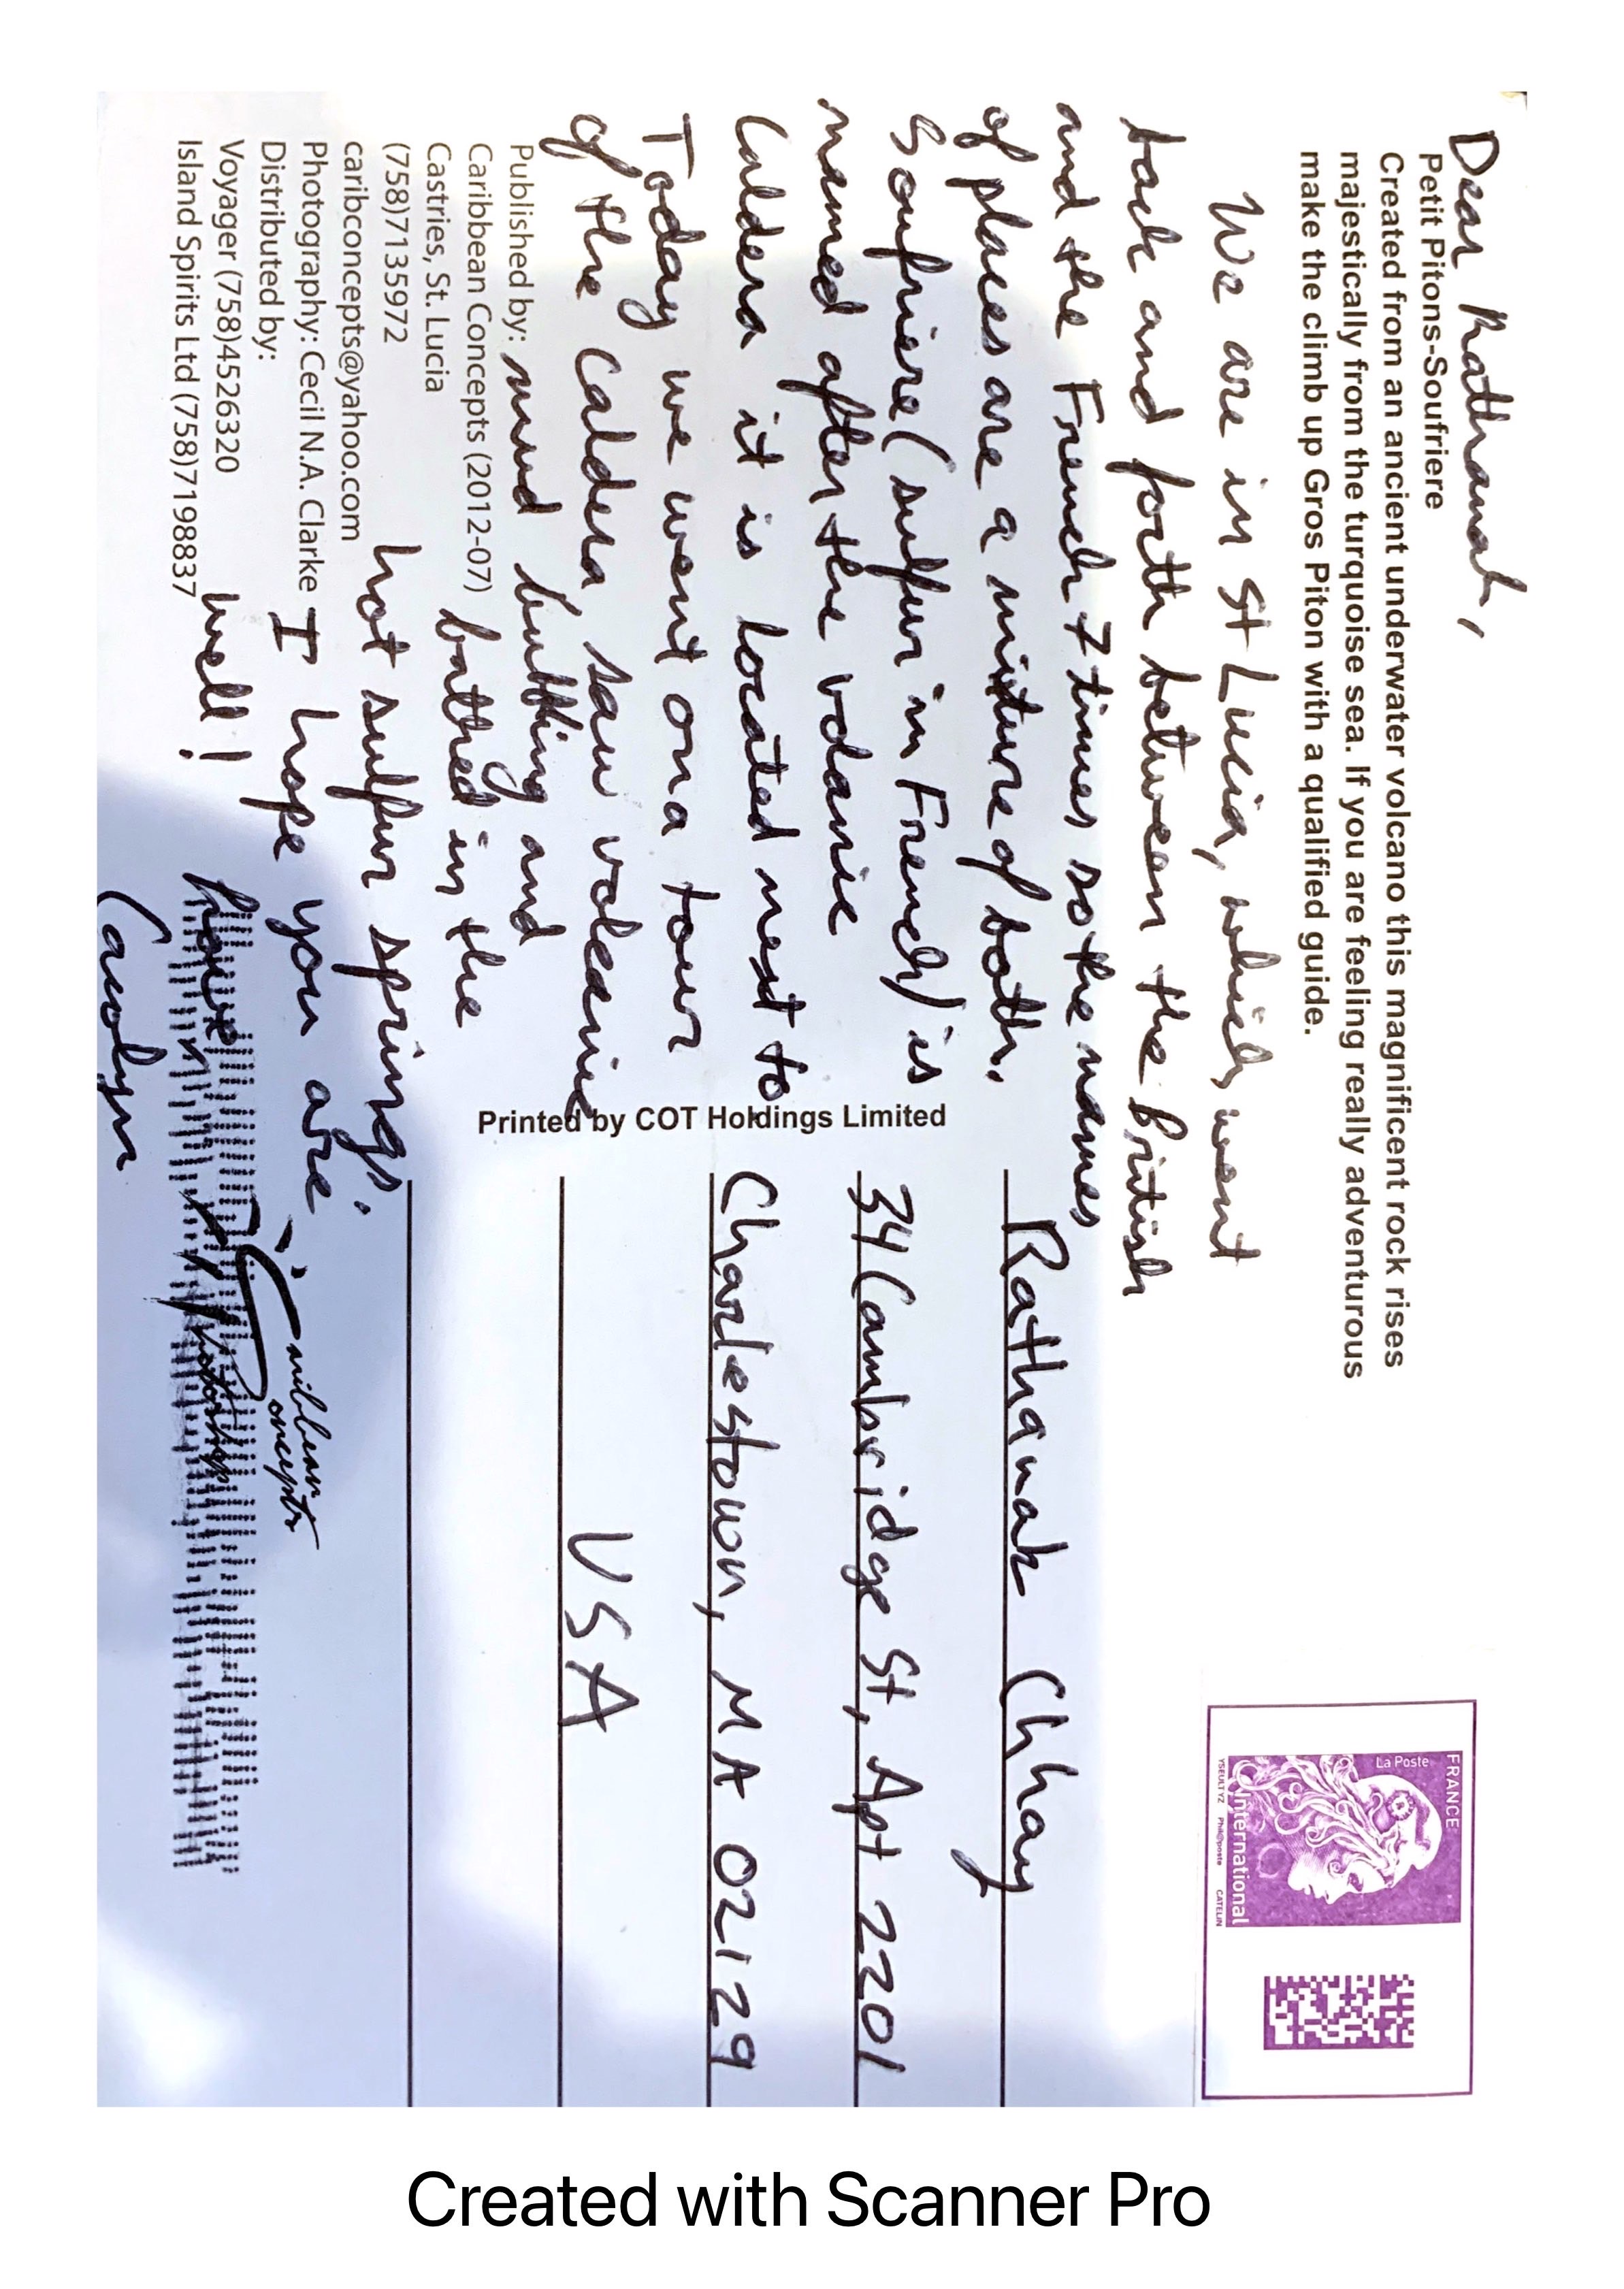 Dear Rathanak,
Petit Pitons-Soufriere
Created from an ancient underwater volcano this magnificent rock rises
majestically from the turquoise sea. If you are feeling really adventurous
make the climb up Gros Piton with a qualified guide.
We are in St Lucia, which went
back and forth between the british
and the French 7 times so the names
of places are a mixture of both.
Soufriere (sulfur in French) is
named after the volcanic
Caldera it is located next to
Today we went on a tour
of the Caldera saw volcanic
mud bubbling and
bathed in the
hot sulfur springs.
I hope you are
well!
Carolyn
Published by:
Caribbean Concepts (2012-07)
Castries, St. Lucia
(758)7135972
caribconcepts@yahoo.com
Photography: Cecil N.A. Clarke
Distributed by:
Voyager (758)4526320
Island Spirits Ltd (758)7198837
Printed by COT Holdings Limited
Rathanak Chhay
34 Cambridge St, Apt 2201
Charlestown, MA 02129
USA
FRANCE
La Poste
International
YSEULT YZ Phil@poste CATELIN
Caribbean
Concepts
Created with Scanner Pro